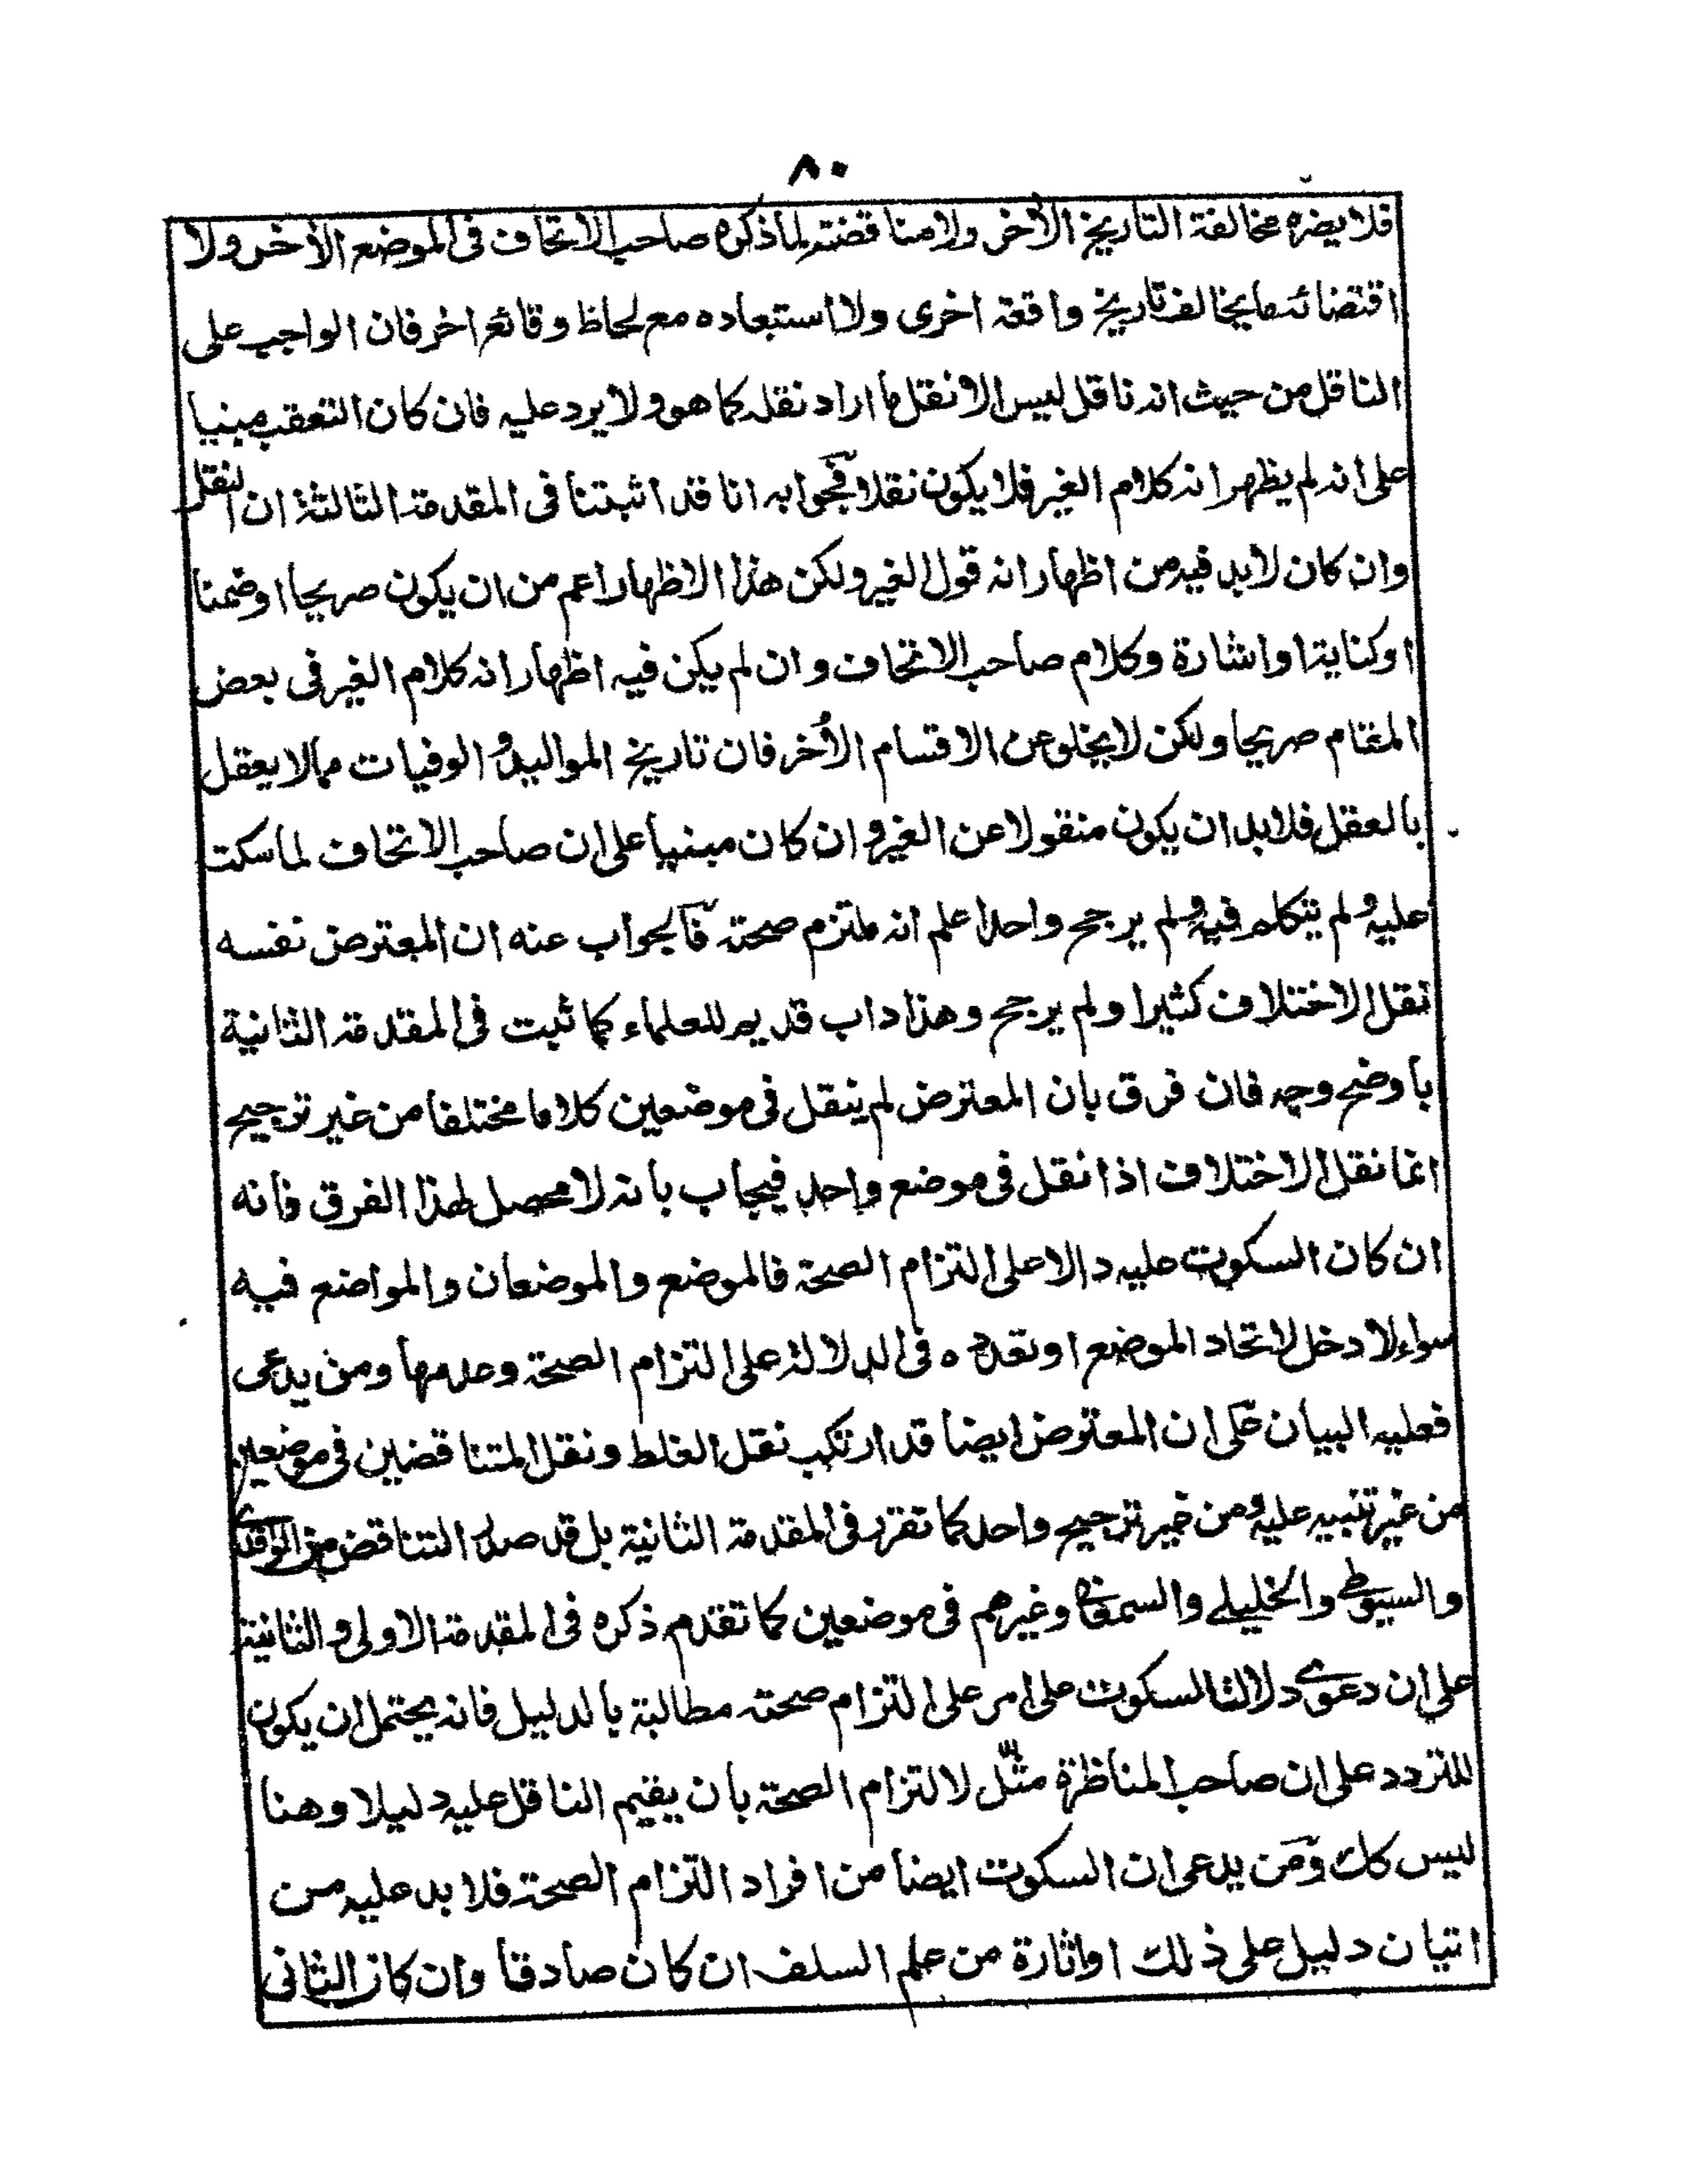 ٨٠
فلا يضره مخالفة التاريخ الأخر ولا مناقضته لما ذكره صاحب الاتحاف فى الموضع الأخر ولا
اقتضائه ما يخالف تاريخ واقعة اخرى ولا استبعاده مع لحاظ وقائع اخر فان الواجب على
الناقل من حيث انه ناقل ليس الا نقل ما اراد نقله كما هو ولا يرد عليه فان كان التعقب مبنيا
على انه لم يظهر انه كلام الغير فلا يكون نقلا فجوابه انا قد اثبتنا فى المقدمة الثالثة ان النقل
وان كان لابد فيه من اظهار انه قول الغير ولكن هذا الاظهار اعم من ان يكون صريحا او ضمنا
او كناية او اشارة وكلام صاحب الاتحاف وان لم يكن فيه اظهار انه كلام الغير فى بعض
المقام صريحا ولكن لا يخلو عن الاقسام الأخر فان تاريخ المواليد و الوفيات مما لا يعقل
بالعقل فلا بد ان يكون منقولا عن الغير و ان كان مبنيا على ان صاحب الاتحاف لما سكت
عليه و لم يتكلم فيه و لم يرجح واحدا علم انه ملتزم صحته فالجواب عنه ان المعترض نفسه
نقل الاختلاف كثيرا ولم يرجح وهذا داب قديم للعلماء كما ثبت فى المقدمة الثانية
باوضح وجه فان فرق بان المعترض لم ينقل فى موضعين كلاما مختلفا من غير ترجيح
انما نقل الاختلاف اذا نقل فى موضع واحد فيجاب بانه لا محصل لهذا الفرق فانه
ان كان السكوت عليه دالا على التزام الصحة فالموضع والموضعان والمواضع فيه
سواء لا دخل لاتحاد الموضع او تعدده فى الدلالة على التزام الصحة وعدمها ومن يدعى
فعليه البيان على ان المعترض ايضا قد ارتكب نقل الغلط ونقل المتناقضين فى موضعين
من غير تنبيه عليه و من غير ترجيح واحد كما تقرر فى المقدمة الثانية بل قد صدر التناقض من الواقدى
والسيوطى والخليلى والسمعانى وغيرهم فى موضعين كما تقدم ذكره فى المقدمة الاولى و الثانية
على ان دعوى دلالة السكوت على امر على التزام صحته مطالبة بالدليل فانه يحتمل ان يكون
للتردد على ان صاحب المناظرة مثّل لالتزام الصحة بان يقيم الناقل عليه دليلا وهنا
ليس كك ومن يدعى ان السكوت ايضا من افراد التزام الصحة فلا بد عليه من
اتيان دليل على ذلك او اثارة من علم السلف ان كان صادقا وان كان الثانى